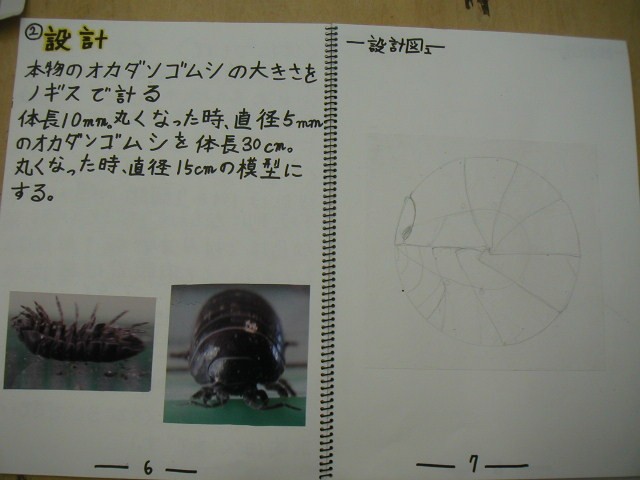 ② 設計
本物のオカダンゴムシの大きさを
ノギスで計る
体長10mm。丸くなった時、直径5mm
のオカダンゴムシを体長30cm。
丸くなった時、直径15cmの模型に
する。
6
設計図1
7